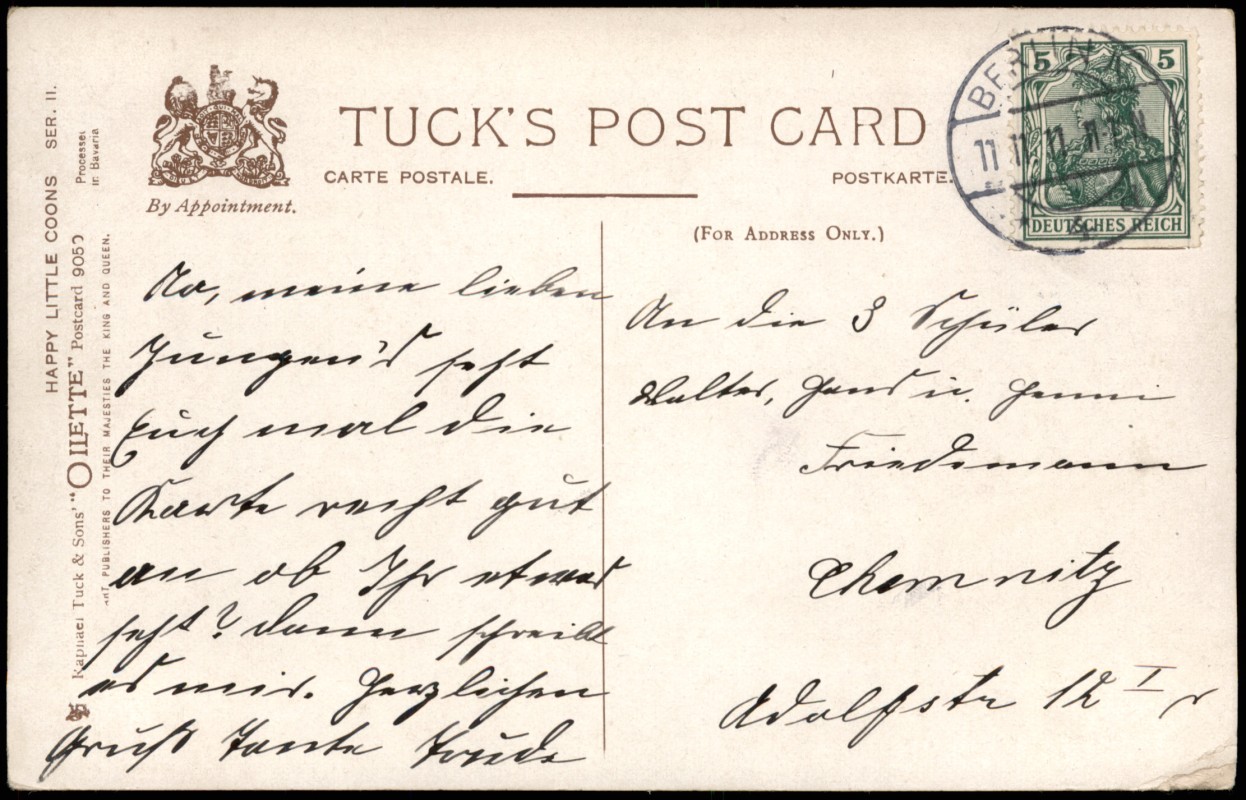 HAPPY LITTLE COONS SER. II.
Raphael Tuck & Sons' "OILETTE" Postcard 9050
ART PUBLISHERS TO THEIR MAJESTIES THE KING AND QUEEN.
Processed
in Bavaria
By Appointment.
TUCK'S POST CARD
CARTE POSTALE.
POSTKARTE.
(FOR ADDRESS ONLY.)
BERLIN
11 11 11
5 5
DEUTSCHES REICH
Na, meine lieben
Jungen's seht
Euch mal die
Karte recht gut
an ob Ihr etwas
seht? dann schreibt
es mir. Herzlichen
Gruß Tante Trude
An die 3 Schüler
Walter, Hans u. Henni
Friedemann
Chemnitz
Adolfstr 12 I r